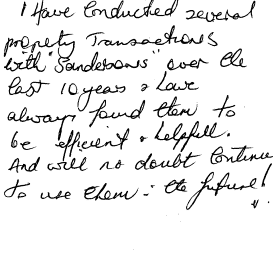 I Have Conducted several
property Transactions
with "Sandersons" over the
last 10 years & have
always found them to
be efficient & helpfull.
And will no doubt Continue
To use them in the future!